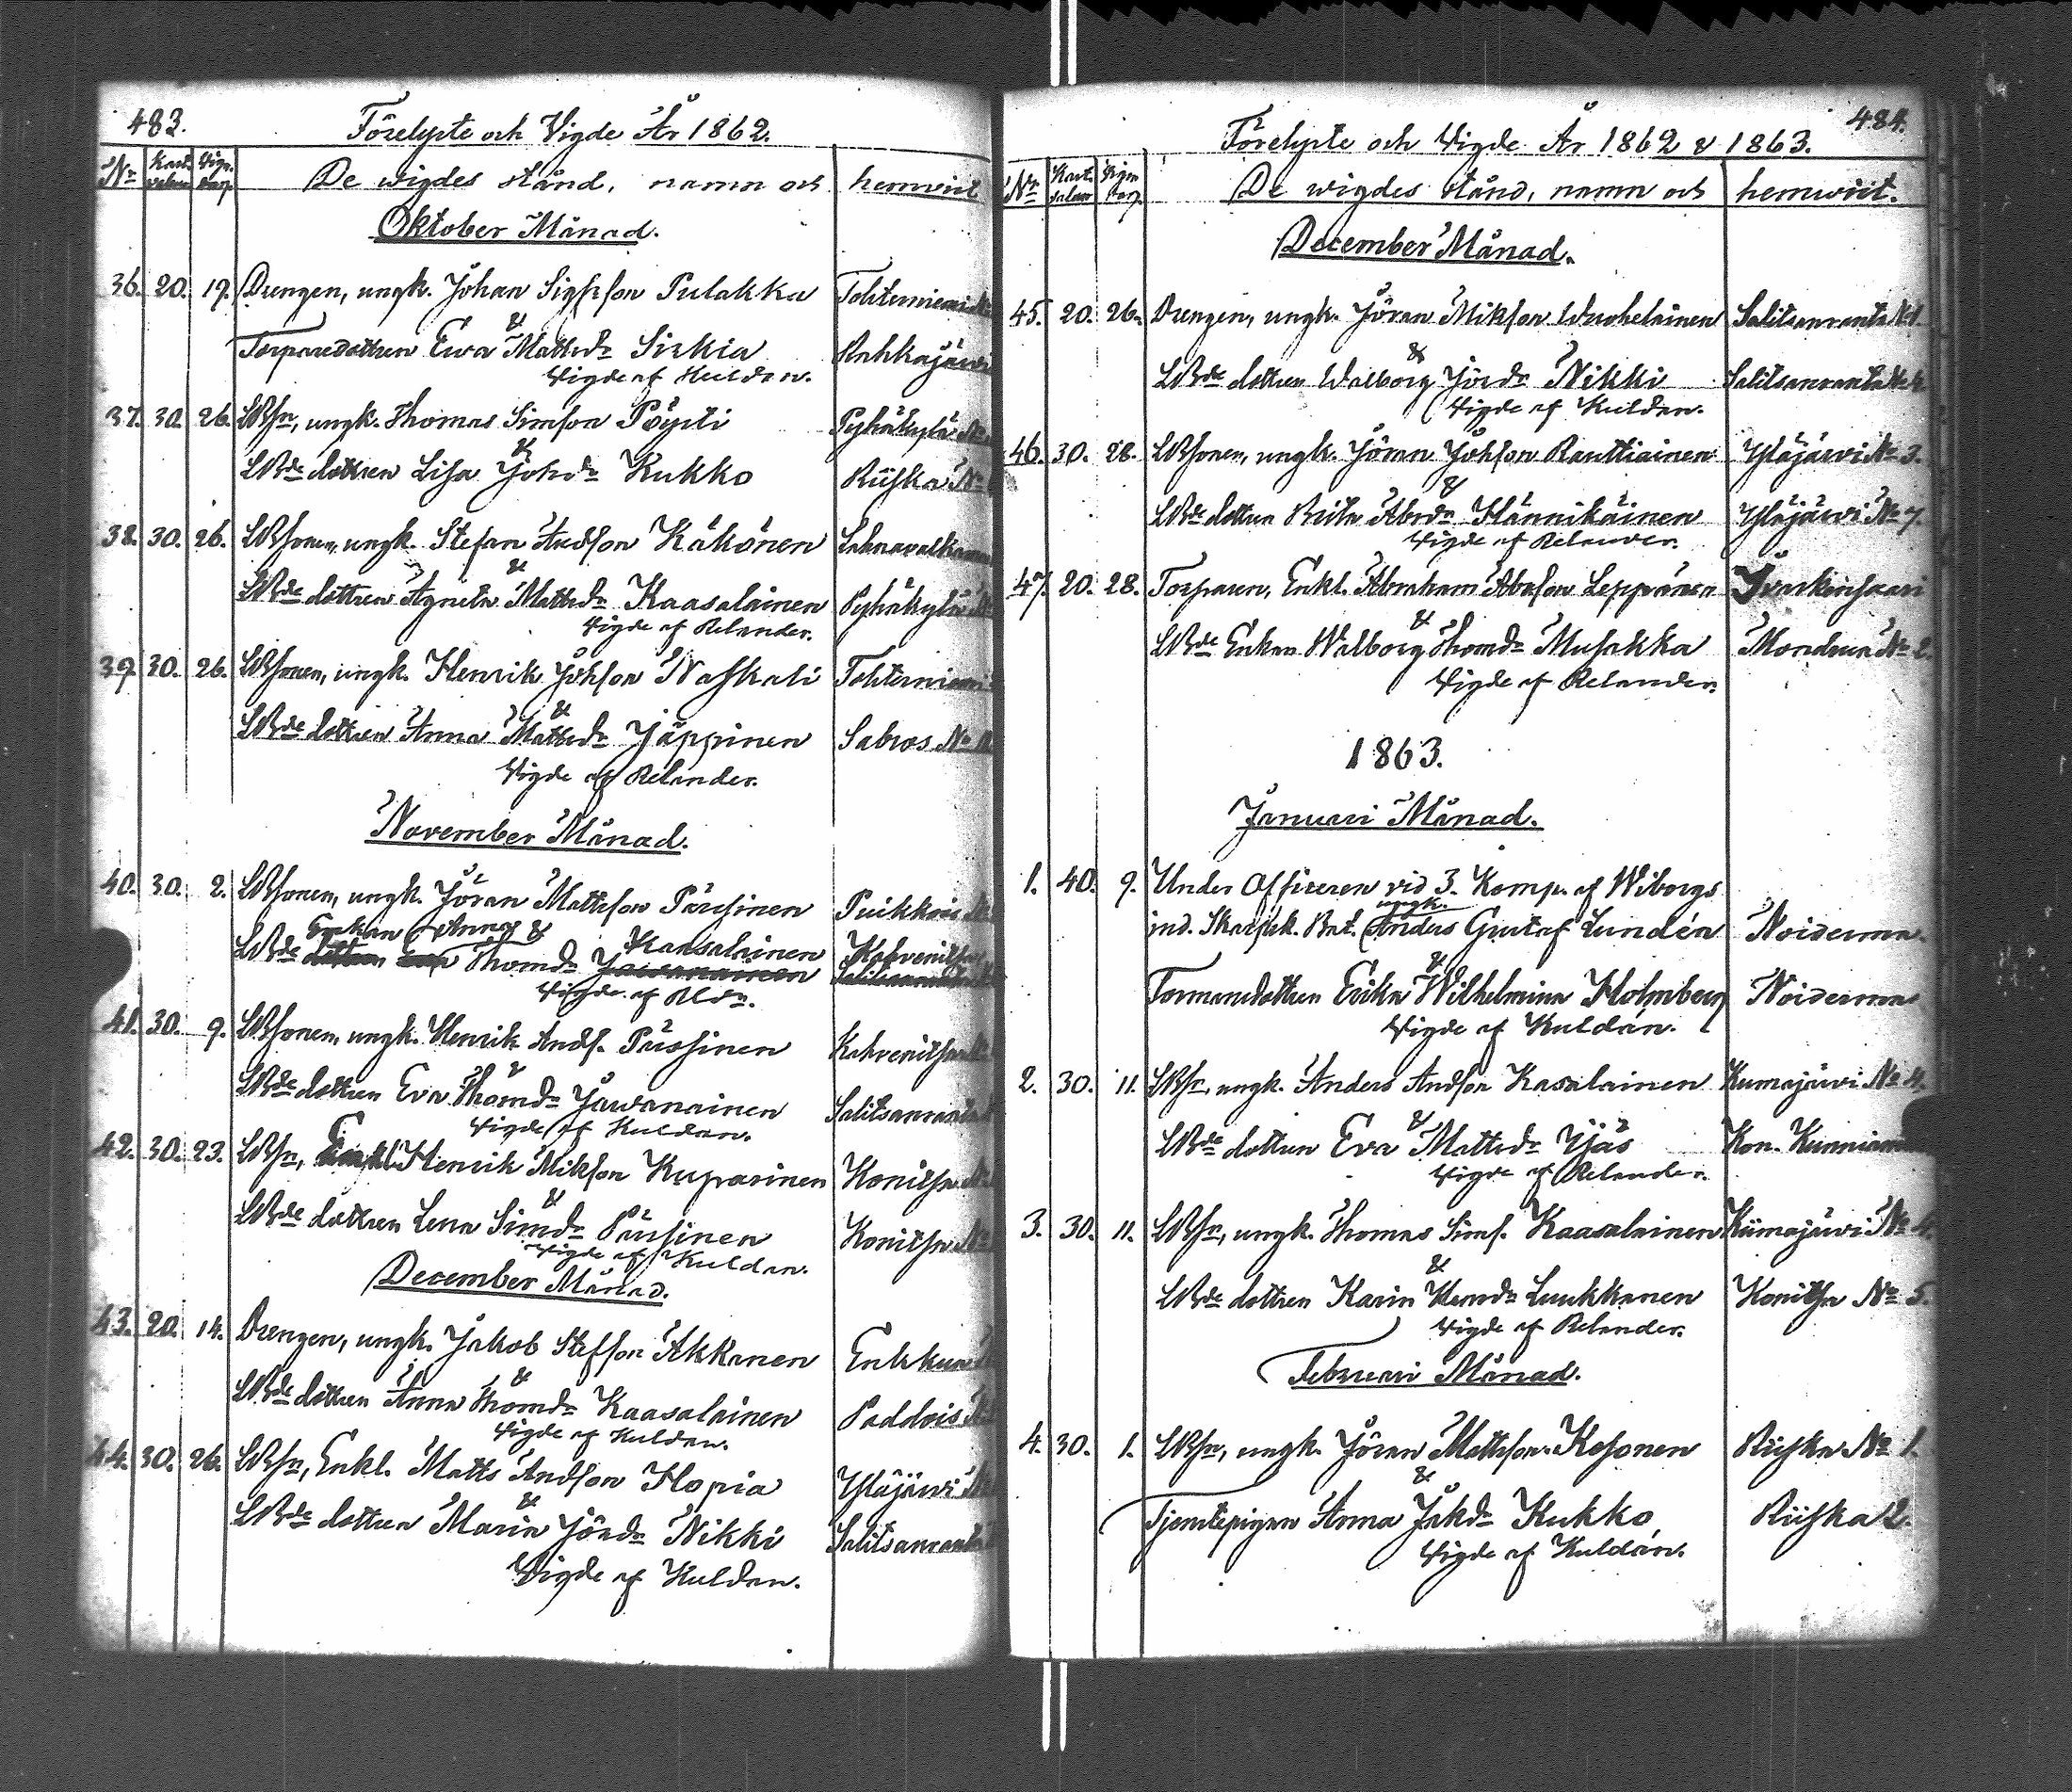 483.
Förelyste och Vigde År 1862.
No Kast. salem Vign. dag. De wigdes stånd, namn och hemvist
Oktober Månad.
36. 20. 19. Drengen, ungk. Johan Sigfrson Pulakka Tohterniemi
&
Torparedottren Ewa Mattsdr Sirkiä Rahkajärwi
Vigde af Kuldan.
37. 30. 26. LBsn, ungk. Thomas Simson Pöysti Pyhäkylä No
&
LBde dottren Lisa Johdr Kukko Riiska No
38. 30. 26. LBsonen, ungk. Stefan Andson Käkönen
&
LBde dottren Agneta Mattsdr Kaasalainen Pyhäkylä
Vigde af Relander.
39. 30. 26. LBsonen, ungk. Henrik Johson Naskali Tohterniemi
&
LBde dottren Anna Mattsdr Jäppinen Sabros No
Vigde af Relander.
November Månad.
40. 30. 2. LBsonen, ungk. Jöran Mattsson Pärssinen Puikkois
Enkan Anna & Kaasalainen Kahvenitsa
LBde dottren Eva Thomdr Jawanainen Salitsanranta
Vigde af Rldr.
41. 30. 9. LBsonen, ungk. Henrik Ands. Pärssinen Kahvenitsa
&
LBde dottren Eva Thomdr Jawanainen Salitsanranta
Vigde af Kuldan.
42. 30. 23. LBsn, Enkl. Henrik Mikson Kuparinen Konitsa No
&
LBde dottren Lena Simdr Pärssinen Konitsa No
Vigde af Kuldan.
December Månad.
43. 20. 14. Drengen, ungk. Jakob Stefson Akkanen Enkkua
&
LBde dottren Anna Thomdr Kaasalainen Paddois
Vigde af Kuldan.
44. 30. 26. LBsn, Enkl. Matts Andson Hopia Yläjärwi
&
LBde dottren Maria Jördr Nikki Salitsanranta
Vigde af Kuldan.
484.
Förelyste och Vigde År 1862 & 1863.
No Kast. salem Vign dag. De wigdes stånd, namn och hemwist.
December Månad.
45. 20. 26. Drengen, ungk. Jöran Mikson Wuohelainen Salitsanranta No 1.
&
LBde dottren Walborg Jördr Nikki Salitsanranta No
Vigde af Kuldan.
46. 30. 28. LBsonen, ungk. Jöran Johson Ranttiainen Yläjärwi No 3.
&
LBde dottren Brita Abrdr Hännikäinen Yläjärwi No 7.
Vigde af Relander.
47. 20. 28. Torparen, Enkl. Abraham Abrson Leppänen
&
LBde Enkan Walborg Thomdr Musakka No 2.
Vigde af Relander.
1863.
Januari Månad.
1. 40. 9. Under Officeren vid 3. Komp. af Wiborgs
ungk.
ind. Skarpsk. Bat. Anders Gustaf Lundén Noiderma.
&
Formansdottren Erika Wilhelmina Holmberg Noiderma
Vigde af Kuldán.
2. 30. 11. LBsn, ungk. Anders Andson Kasalainen Kumajärwi No 4.
&
LBde dottren Eva Mattsdr Yjäs Kon. Kunnian
Vigde af Relander.
3. 30. 11. LBsn, ungk. Thomas Sims. Kaasalainen Kiimajärwi No 4.
&
LBde dottren Karin Hemdr Luukkanen Konitsa No 5.
Vigde af Relander.
Februari Månad.
4. 30. 1. LBsn, ungk. Jöran Mattsson Kosonen Riiska No 1.
&
Tjenstepigan Anna Jakdr Kukko Riiska 2.
Vigde af Kuldán.